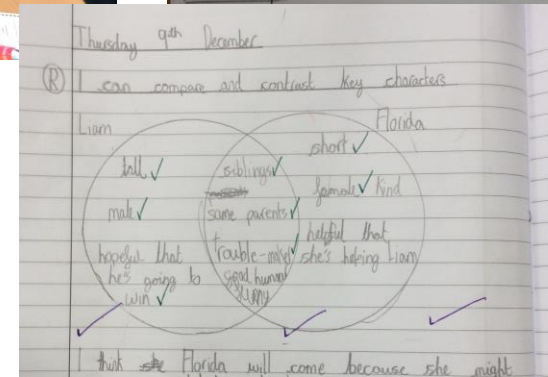 Thursday 9th December
R I can compare and contrast key characters
Liam
Florida
tall
male
hopeful that
he's going to
win
siblings
same parents
trouble-maker
good humour
funny
short
female kind
helpful that
she's helping Liam
I think she Florida will come because she might